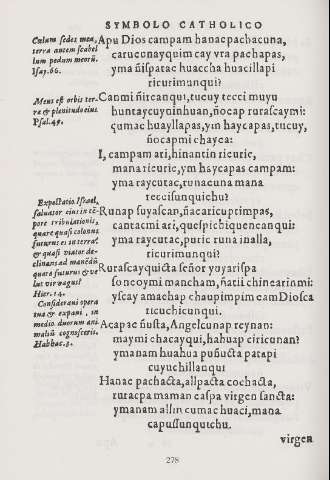 SYMBOLO CATHOLICO
Cælum sedes mea,
terra autem scabel
lum pedum meorū.
Isay. 66.
Meus est orbis ter-
ræ & plenitudo eius
Psal. 49.
Expectatio Israel,
saluator eius in tē-
pore tribulationis,
quare quasi colonus
futurus es in terra?
& quasi viator de-
clinans ad manēdū
quare futurus es ve
lut vir vagus?
Hier. 14.
Consideraui opera
tua & expaui, in
medio duorum ani
malium cognosceris.
Habbac. 3.
Apu Dios campam hanacpachacuna,
catucunayquim cay vra pachapas,
yma ñispatac huaccha huacillapi
ricurimunqui?
Canmi ñircanqui, tucuy teeci muyu
huntaycuyninhuan, ñocap rurascaymi:
çumac huayllapas, yin haycapas, tucuy,
ñocapmi chayca:
I, campam ari, hinantin ricuric,
mana ricuric, ym haycapas campam:
yma raycutac, runacuna mana
recsisunquichu?
Runap suyascan, ñacaricuptimpas,
cantacmi ari, quespichiquencanqui:
yma raycutac, puric runa inalla,
ricurimunqui?
Rurascayquicta señor yuyarispa
soncoymi mancham, ñatii chinearinmi:
yscay amachap chaupimpim cam Diosca
ricuchicunqui.
Acapac ñusta, Angelcunap reynan:
maymi chacayqui, hahuap ciricunan?
ymanam huahua puñucta patapi
cuyuchillanqui
Hanac pachacta, allpacta cochacta,
ruracpa maman caspa virgen sancta:
ymanam allin cumac huaci, mana
capussunquichu.
virgen
278